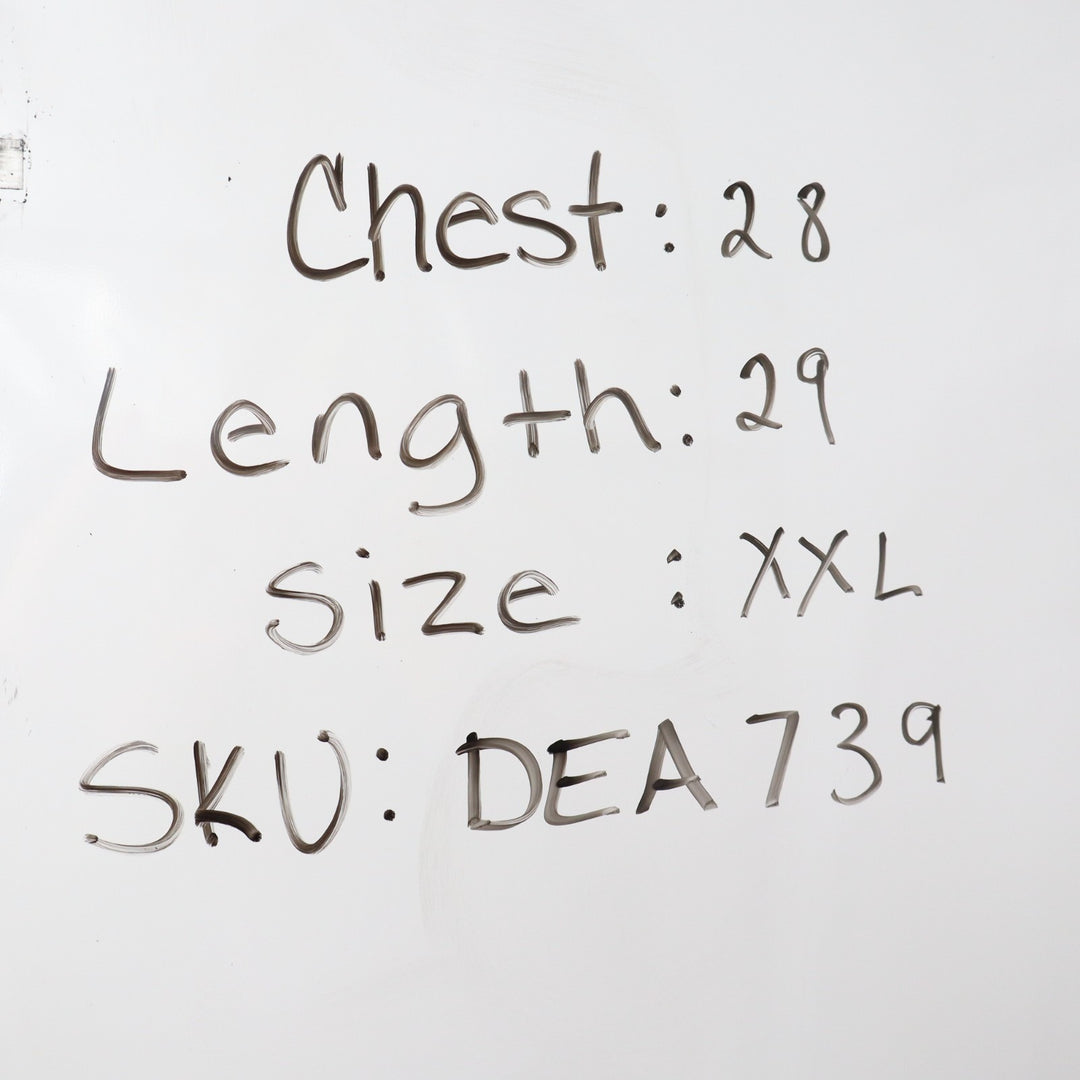 Chest: 28
Length: 29
Size : XXL
SKU: DEA739